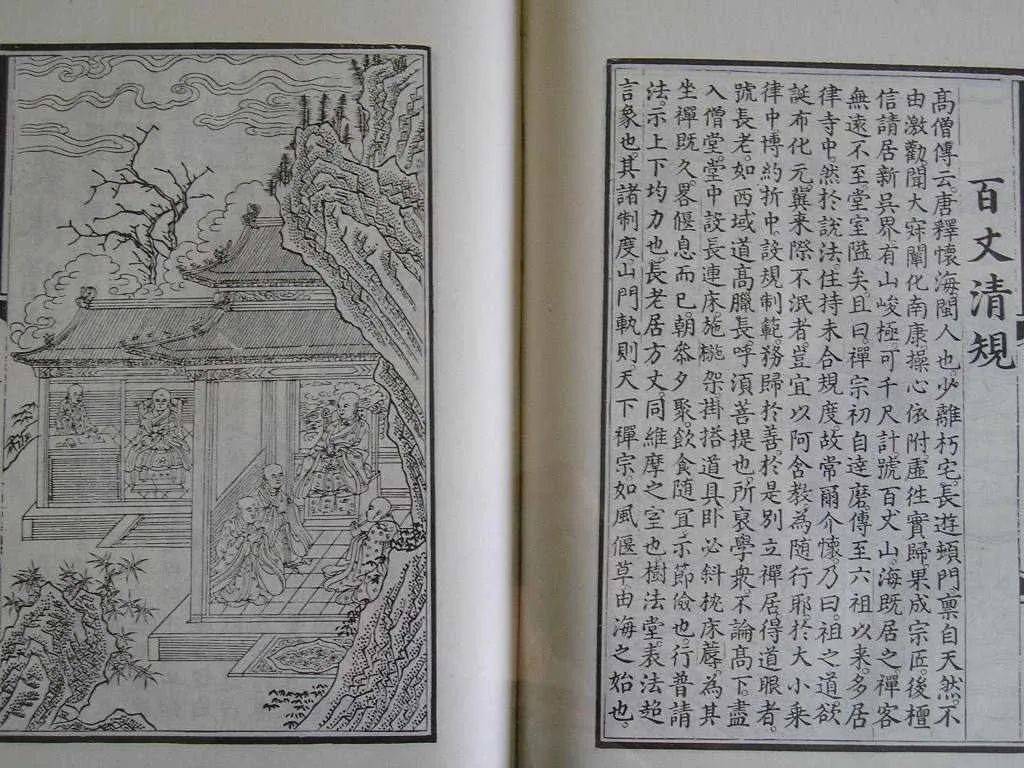 百丈清規
高僧傳云唐釋懷海閩人也少離朽宅長遊頓門稟自天然不
由激勸聞大寂闡化南康操心依附虛往實歸果成宗匠後檀
信請居新吳界有山峻極可千尺計號百丈山海既居之禪客
無遠不至堂室隘矣且曰禪宗初自達磨傳至六祖以來多居
律寺中然於說法住持未合規度故常爾介懷乃曰祖之道欲
誕布化元冀來際不泯者豈宜以阿含教為隨行耶於大小乘
律中博約折中設規制範務歸於善於是別立禪居得道眼者
號長老如西域道高臘長呼須菩提也所裒學衆不論高下盡
入僧堂堂中設長連床施椸架掛搭道具臥必斜枕床蓐為其
坐禪既久畧偃息而已朝叅夕聚飲食隨宜示節儉也行普請
法示上下均力也長老居方丈同維摩之室也樹法堂表法超
言象也其諸制度山門軌則天下禪宗如風偃草由海之始也